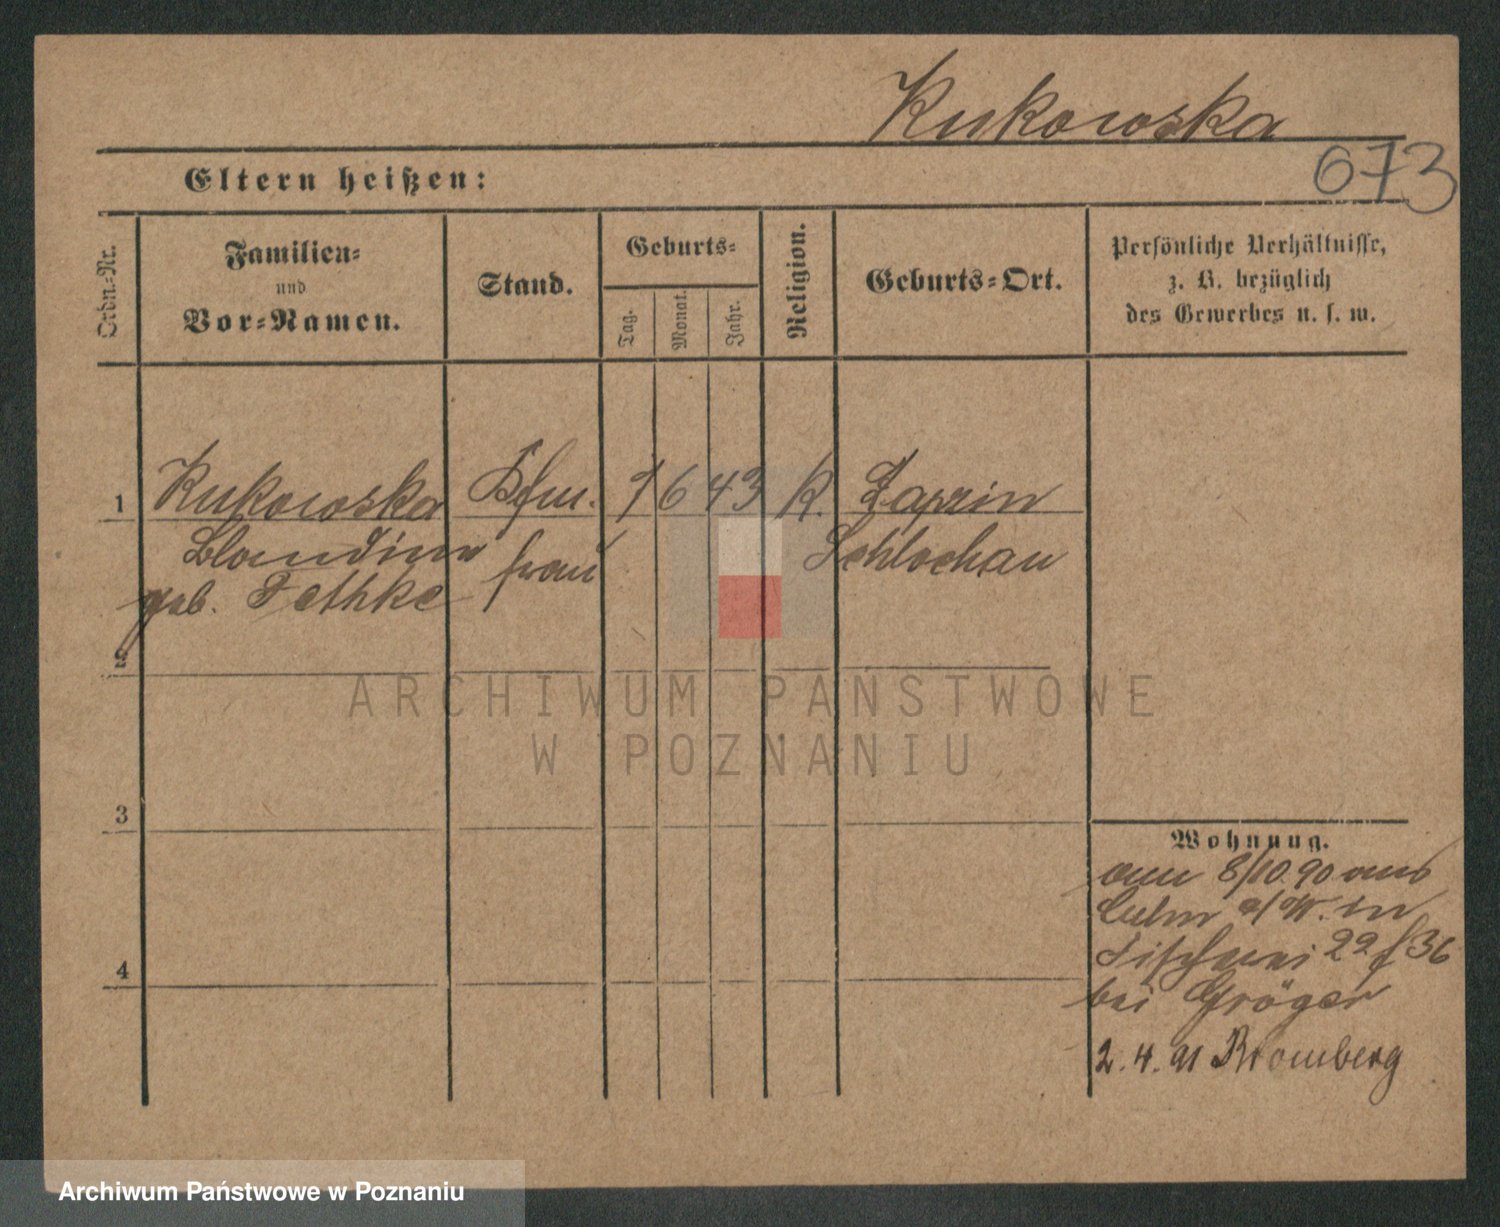 Kukowska
673
Eltern heißen:
Ordn.-Nr.
Familien-
und
Vor-Namen.
Stand.
Geburts-
Tag.
Monat.
Jahr.
Religion.
Geburts-Ort.
Persönliche Verhältnisse,
z. B. bezüglich
des Gewerbes u. s. w.
1 Kukowska 6 43 K.
Blandine frau Schlochau
geb. Fethke
2
3
4
Wohnung.
am 8/10.90 aus
Culm a/W. in
Fischerei 22 f 36
bei Gröger
2. 4. 91 Bromberg
ARCHIWUM PAŃSTWOWE
W POZNANIU
Archiwum Państwowe w Poznaniu